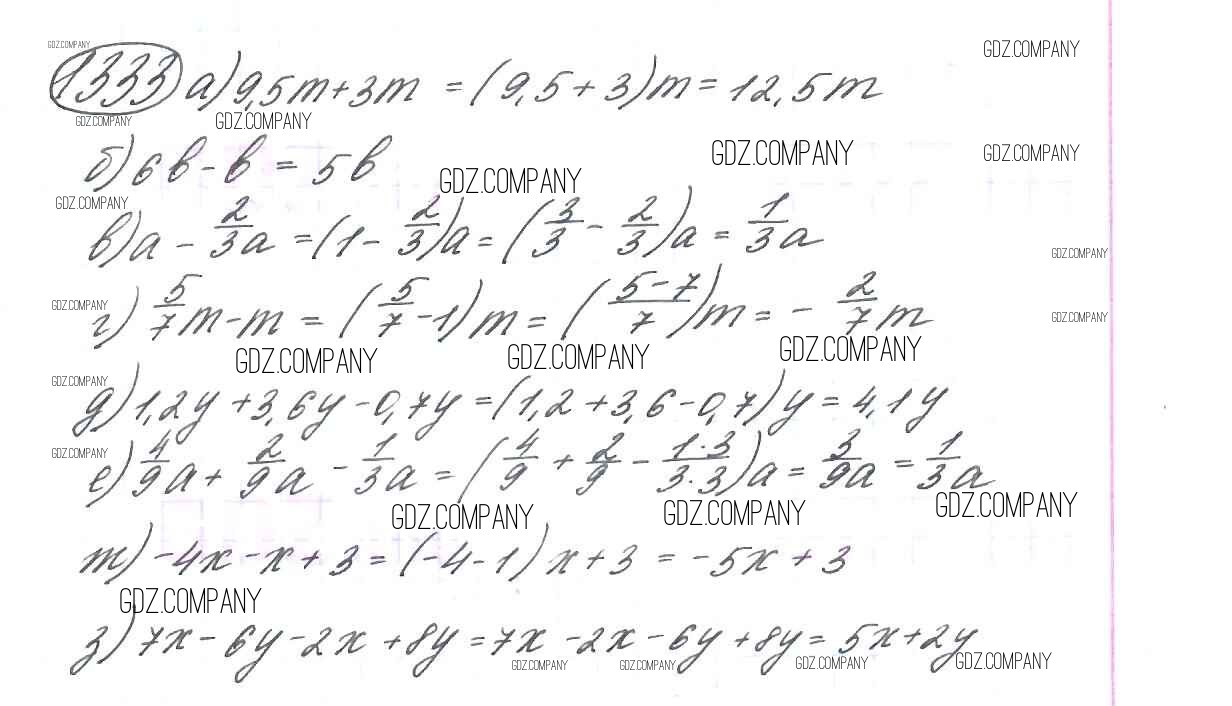 GDZ.COMPANY
GDZ.COMPANY
1333 а) 9,5m + 3m = (9,5 + 3)m = 12,5m
GDZ.COMPANY GDZ.COMPANY
GDZ.COMPANY GDZ.COMPANY
б) 6в - в = 5в
GDZ.COMPANY
GDZ.COMPANY
в) а - 2/3 а = (1 - 2/3)а = (3/3 - 2/3)а = 1/3 а
GDZ.COMPANY
GDZ.COMPANY
г) 5/7 m - m = (5/7 - 1)m = (5-7/7)m = - 2/7 m
GDZ.COMPANY
GDZ.COMPANY GDZ.COMPANY GDZ.COMPANY
GDZ.COMPANY
д) 1,2у + 3,6у - 0,7у = (1,2 + 3,6 - 0,7)у = 4,1у
GDZ.COMPANY
е) 4/9 а + 2/9 а - 1/3 а = (4/9 + 2/9 - 1·3/3·3)а = 3/9 а = 1/3 а
GDZ.COMPANY GDZ.COMPANY GDZ.COMPANY
ж) -4х - х + 3 = (-4 - 1)х + 3 = -5х + 3
GDZ.COMPANY
з) 7х - 6у - 2х + 8у = 7х - 2х - 6у + 8у = 5х + 2у
GDZ.COMPANY GDZ.COMPANY GDZ.COMPANY GDZ.COMPANY